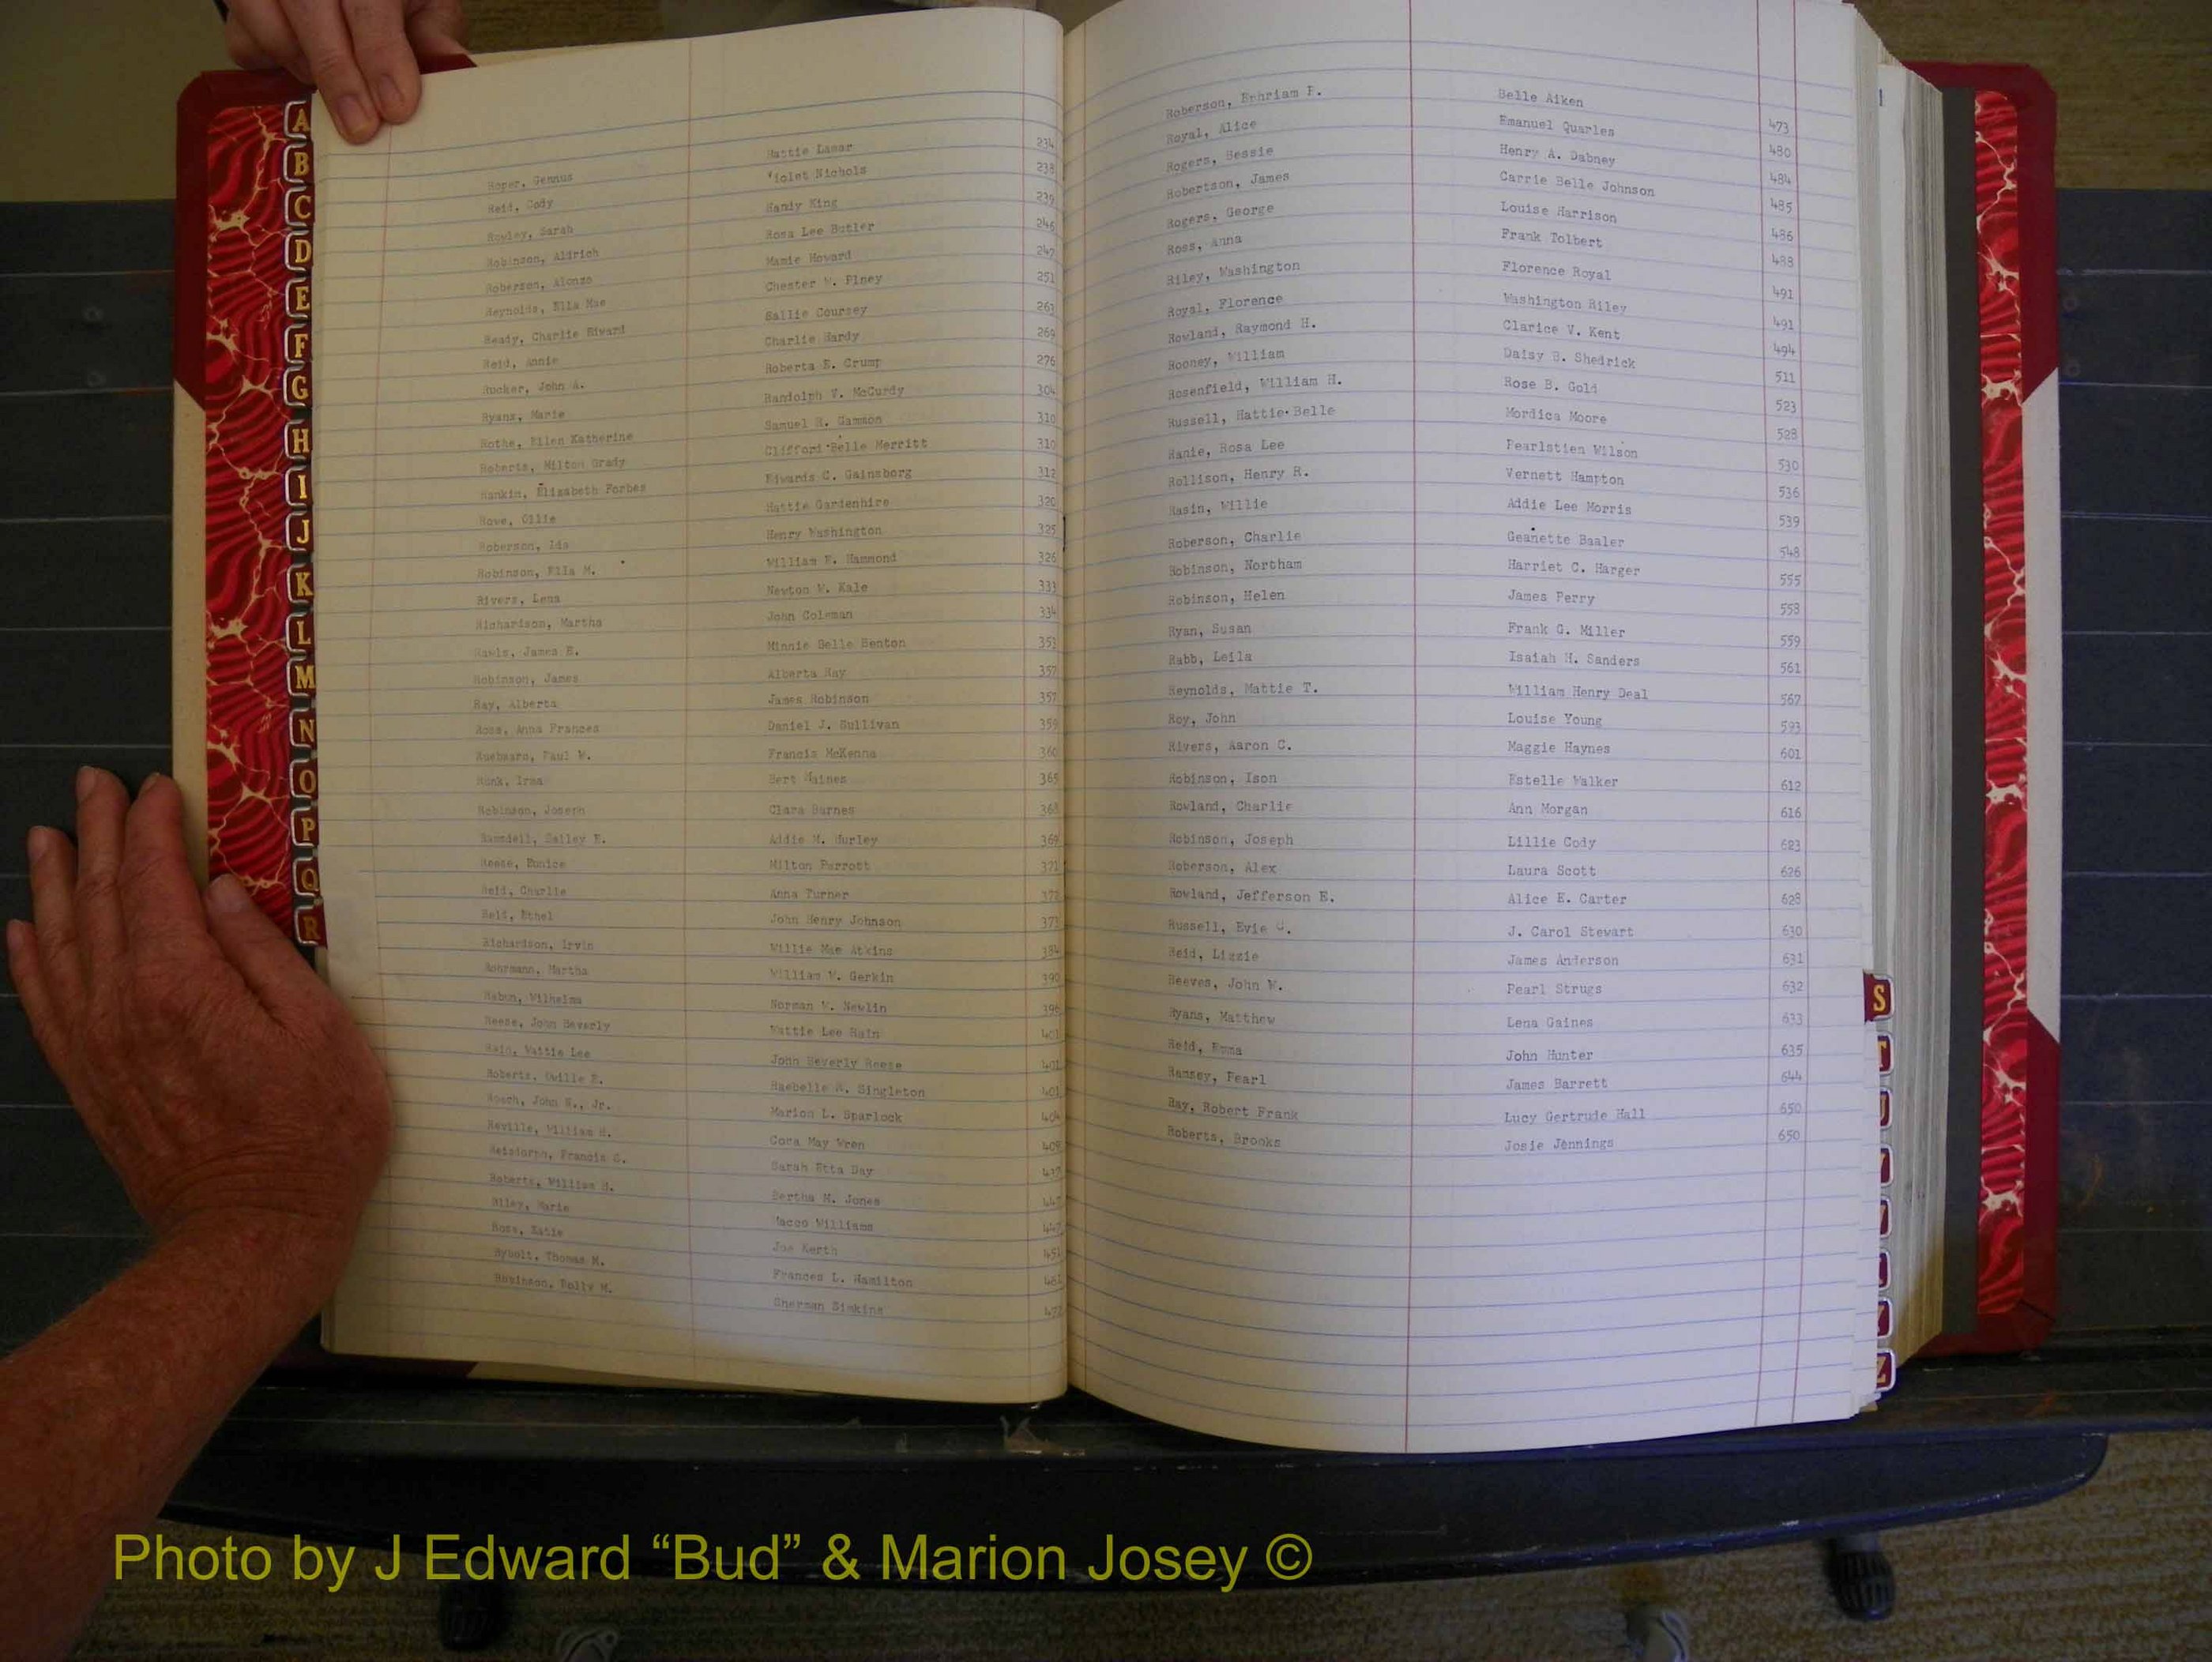 A
B
C
D
E
F
G
H
I
J
K
L
M
N
O
P
Q
R
Roper, Gennus Mattie Lamar 234
Reid, Cody Violet Nichols 238
Rowley, Sarah Handy King 239
Robinson, Aldrich Rosa Lee Butler 246
Roberson, Alonzo Mamie Howard 247
Reynolds, Ella Mae Chester W. Piney 251
Ready, Charlie Edward Sallie Coursey 261
Reid, Annie Charlie Hardy 269
Rucker, John A. Roberta E. Crump 276
Ryans, Marie Randolph V. McCurdy 304
Rothe, Ellen Katherine Samuel R. Gammon 310
Roberts, Milton Grady Clifford Belle Merritt 310
Rankin, Elizabeth Forbes Edwards C. Gainsborg 312
Rowe, Ollie Hattie Gardenhire 320
Roberson, Ida Henry Washington 325
Robinson, Ella M. William F. Hammond 326
Rivers, Lena Newton W. Kale 333
Richardson, Martha John Coleman 334
Rawls, James E. Minnie Belle Benton 353
Robinson, James Alberta Ray 357
Ray, Alberta James Robinson 357
Ross, Anna Frances Daniel J. Sullivan 359
Paul W. Francis McKenna 360
Runk, Irma Bert Haines 365
Robinson, Joseph Clara Barnes 368
Ramsdell, Salley E. Addie M. Hurley 369
Reese, Eunice Milton Parrott 371
Reid, Charlie Anna Turner 372
Reid, Ethel John Henry Johnson 373
Richardson, Irvin Willie Mae Atkins 384
Rohrmann, Martha William W. Gerkin 390
Rabun, Wilhelma Norman W. Newlin 396
Reese, John Beverly Wattie Lee Rain 401
Rain, Wattie Lee John Beverly Reese 401
Roberts, E. Raebelle R. Singleton 401
Roach, John E., Jr. Marion L. Sparlock 404
Reville, William H. Cora May Wren 409
Francis G. Sarah Etta Day 437
Roberts, William H. Bertha M. Jones 447
Riley, Marie Macco Williams 447
Ross, Katie Joe Kerth 451
Rybolt, Thomas M. Frances L. Hamilton 461
Robinson, Polly M. Sherman Simkins 472
Roberson, Ephriam P. Belle Aiken 473
Royal, Alice Emanuel Quarles 480
Rogers, Bessie Henry A. Dabney 484
Robertson, James Carrie Belle Johnson 485
Rogers, George Louise Harrison 486
Ross, Anna Frank Tolbert 488
Riley, Washington Florence Royal 491
Royal, Florence Washington Riley 491
Rowland, Raymond H. Clarice V. Kent 494
Rooney, William Daisy B. Shedrick 511
Rosenfield, William H. Rose B. Gold 523
Russell, Hattie Belle Mordica Moore 528
Ranie, Rosa Lee Pearlstien Wilson 530
Rollison, Henry R. Vernett Hampton 536
Rasin, Willie Addie Lee Morris 539
Roberson, Charlie Geanette Baaler 548
Robinson, Northam Harriet C. Harger 555
Robinson, Helen James Perry 558
Ryan, Susan Frank G. Miller 559
Rabb, Leila Isaiah H. Sanders 561
Reynolds, Mattie T. William Henry Deal 567
Roy, John Louise Young 593
Rivers, Aaron C. Maggie Haynes 601
Robinson, Ison Estelle Walker 612
Rowland, Charlie Ann Morgan 616
Robinson, Joseph Lillie Cody 623
Roberson, Alex Laura Scott 626
Rowland, Jefferson E. Alice E. Carter 628
Russell, Evie J. Carol Stewart 630
Reid, Lizzie James Anderson 631
Reeves, John W. Pearl Strugs 632
Ryans, Matthew Lena Gaines 633
Reid, Emma John Hunter 635
Ramsey, Pearl James Barrett 644
Ray, Robert Frank Lucy Gertrude Hall 650
Roberts, Brooks Josie Jennings 650
S
T
U
Z
Photo by J Edward “Bud” & Marion Josey ©